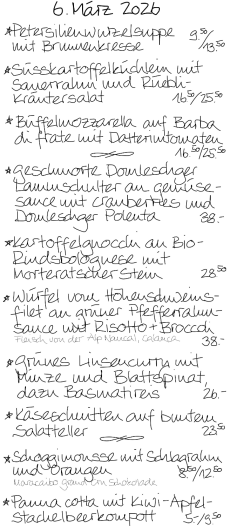 6. März 2026
*Petersilienwurzelsuppe 9.50/
mit Brunnenkresse 13.50
*Süsskartoffelküchlein mit
Sauerrahm und Rüebli-
kräutersalat 16.50/25.50
*Büffelmozzarella auf Barba
di frate mit Datterintomaten
16.50/25.50
*Geschmorte Domleschger
Lammschulter an Gemüse-
sauce mit Cranberries und
Domleschger Polenta 38.-
*Kartoffelgnocchi an Bio-
Rindsbolognese mit
Morteratscher Stein 28.50
*Würfel vom Höhenschweins-
filet an grüner Pfefferrahm-
sauce mit Risotto + Broccoli
Fleisch von der Alp Naucal, Calanca 38.-
*Grünes Linsencurry mit
Minze und Blattspinat,
dazu Basmatireis 26.-
*Käseschnitten auf buntem
Salatteller 23.50
*Schoggimousse mit Schlagrahm
und Orangen 8.50/12.50
Maracaibo Grand Cru Schokolade
*Panna cotta mit Kiwi-Apfel-
Stachelbeerkompott 5.-/9.50